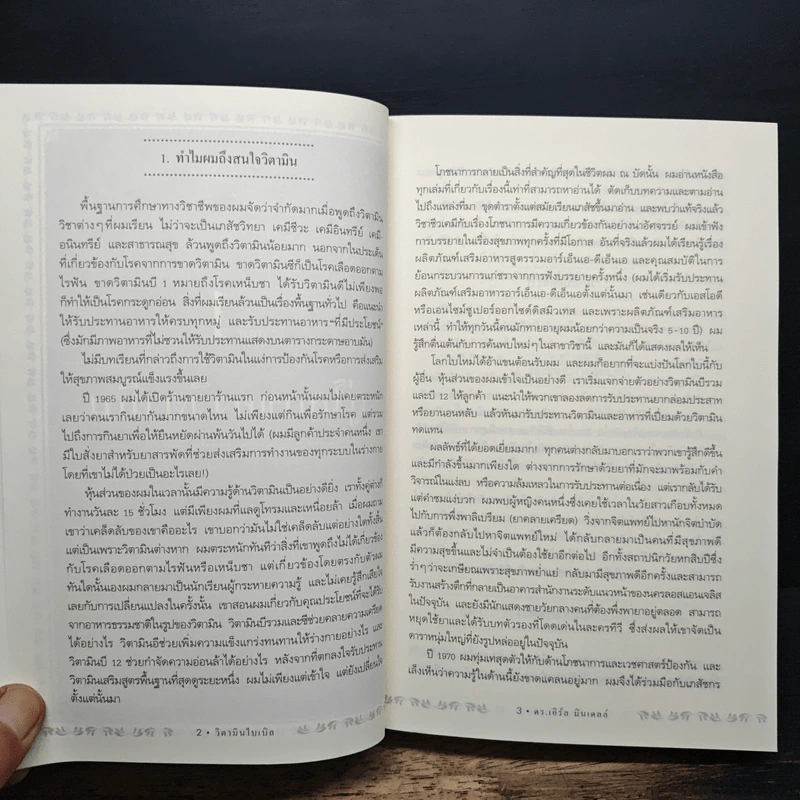 1. ทำไมผมถึงสนใจวิตามิน
พื้นฐานการศึกษาทางวิชาชีพของผมจัดว่าจำกัดมากเมื่อพูดถึงวิตามิน
วิชาต่างๆ ที่ผมเรียน ไม่ว่าจะเป็นเภสัชวิทยา เคมีชีวะ เคมีอินทรีย์ เคมี-
อนินทรีย์ และสาธารณสุข ล้วนพูดถึงวิตามินน้อยมาก นอกจากในประเด็น
ที่เกี่ยวข้องกับโรคจากการขาดวิตามิน ขาดวิตามินซีก็เป็นโรคเลือดออกตาม
ไรฟัน ขาดวิตามินบี 1 หมายถึงโรคเหน็บชา ได้รับวิตามินดีไม่เพียงพอ
ก็ทำให้เป็นโรคกระดูกอ่อน สิ่งที่ผมเรียนล้วนเป็นเรื่องพื้นฐานทั่วไป คือแนะนำ
ให้รับประทานอาหารให้ครบทุกหมู่ และรับประทานอาหาร "ที่มีประโยชน์"
(ซึ่งมักมีภาพอาหารที่ไม่ชวนให้รับประทานแสดงบนตารางกระดาษอาบมัน)
ไม่มีบทเรียนที่กล่าวถึงการใช้วิตามินในแง่การป้องกันโรคหรือการส่งเสริม
ให้สุขภาพสมบูรณ์แข็งแรงขึ้นเลย
ปี 1965 ผมได้เปิดร้านขายยาร้านแรก ก่อนหน้านั้นผมไม่เคยตระหนัก
เลยว่าคนเรากินยากันมากขนาดไหน ไม่เพียงแต่กินเพื่อรักษาโรค แต่รวม
ไปถึงการกินยาเพื่อให้ยืนหยัดผ่านพ้นวันไปได้ (ผมมีลูกค้าประจำคนหนึ่ง เขา
มีใบสั่งยาสำหรับยาสารพัดที่ช่วยส่งเสริมการทำงานของทุกระบบในร่างกาย
โดยที่เขาไม่ได้ป่วยเป็นอะไรเลย!)
หุ้นส่วนของผมในเวลานั้นมีความรู้ด้านวิตามินเป็นอย่างดียิ่ง เราทั้งคู่ต่างก็
ทำงานวันละ 15 ชั่วโมง แต่มีเพียงผมที่แลดูโทรมและเหนื่อยล้า เมื่อผมถาม
เขาว่าเคล็ดลับของเขาคืออะไร เขาบอกว่ามันไม่ใช่เคล็ดลับแต่อย่างใดทั้งสิ้น
แต่เป็นเพราะวิตามินต่างหาก ผมตระหนักทันทีว่าสิ่งที่เขาพูดถึงไม่ได้เกี่ยวข้อง
กับโรคเลือดออกตามไรฟันหรือเหน็บชา แต่เกี่ยวข้องโดยตรงกับตัวผม
ทันใดนั้นเองผมกลายมาเป็นนักเรียนผู้กระหายความรู้ และไม่เคยรู้สึกเสียใจ
เลยกับการเปลี่ยนแปลงในครั้งนั้น เขาสอนผมเกี่ยวกับคุณประโยชน์ที่จะได้รับ
จากอาหารธรรมชาติในรูปของวิตามิน วิตามินบีรวมและซีช่วยคลายความเครียด
ได้อย่างไร วิตามินอีช่วยเพิ่มความแข็งแกร่งทนทานให้ร่างกายอย่างไร และ
วิตามินบี 12 ช่วยกำจัดความอ่อนล้าได้อย่างไร หลังจากที่ตกลงใจรับประทาน
วิตามินเสริมสูตรพื้นฐานที่สุดดูระยะหนึ่ง ผมไม่เพียงแต่เข้าใจ แต่ยังเปลี่ยนใจ
ตั้งแต่นั้นมา
2 • วิตามินไบเบิล
โภชนาการกลายเป็นสิ่งที่สำคัญที่สุดในชีวิตผม ณ บัดนั้น ผมอ่านหนังสือ
ทุกเล่มที่เกี่ยวกับเรื่องนี้เท่าที่สามารถหาอ่านได้ ตัดเก็บบทความและตามอ่าน
ไปถึงแหล่งที่มา ขุดตำราตั้งแต่สมัยเรียนเภสัชขึ้นมาอ่าน และพบว่าแท้จริงแล้ว
วิชาชีวเคมีกับเรื่องโภชนาการมีความเกี่ยวข้องกันอย่างน่าอัศจรรย์ ผมเข้าฟัง
การบรรยายในเรื่องสุขภาพทุกครั้งที่มีโอกาส อันที่จริงแล้วผมได้เรียนรู้เรื่อง
ผลิตภัณฑ์เสริมอาหารสูตรรวมอาร์เอ็นเอ-ดีเอ็นเอ และคุณสมบัติในการ
ย้อนกระบวนการแก่ชราจากการฟังบรรยายครั้งหนึ่ง (ผมได้เริ่มรับประทาน
ผลิตภัณฑ์เสริมอาหารอาร์เอ็นเอ-ดีเอ็นเอตั้งแต่นั้นมา เช่นเดียวกับเอสโอดี
หรือเอนไซม์ซูเปอร์ออกไซด์ดิสมิวเทส และเพราะผลิตภัณฑ์เสริมอาหาร
เหล่านี้ ทำให้ทุกวันนี้คนมักทายอายุผมน้อยกว่าความเป็นจริง 5-10 ปี) ผม
รู้สึกตื่นเต้นกับการค้นพบใหม่ๆ ในสาขาวิชานี้ และมันก็ได้แสดงผลให้เห็น
โลกใบใหม่ได้อ้าแขนต้อนรับผม และผมก็อยากที่จะแบ่งปันโลกใบนี้กับ
ผู้อื่น หุ้นส่วนของผมเข้าใจเป็นอย่างดี เราเริ่มแจกจ่ายตัวอย่างวิตามินบีรวม
และบี 12 ให้ลูกค้า แนะนำให้พวกเขาลองลดการรับประทานยากล่อมประสาท
หรือยานอนหลับ แล้วหันมารับประทานวิตามินและอาหารที่เปี่ยมด้วยวิตามิน
ทดแทน
ผลลัพธ์ที่ได้ยอดเยี่ยมมาก! ทุกคนต่างกลับมาบอกเราว่าพวกเขารู้สึกดีขึ้น
และมีกำลังขึ้นมากเพียงใด ต่างจากการรักษาด้วยยาที่มักจะมาพร้อมกับคำ
วิจารณ์ในแง่ลบ หรือความล้มเหลวในการรับประทานต่อเนื่อง แต่เรากลับได้รับ
แต่คำชมแง่บวก ผมพบผู้หญิงคนหนึ่งซึ่งเคยใช้เวลาในวัยสาวเกือบทั้งหมด
ไปกับการพึ่งพาลิเบรียม (ยาคลายเครียด) วิ่งจากจิตแพทย์ไปหานักจิตบำบัด
แล้วก็ต้องกลับไปหาจิตแพทย์ใหม่ ได้กลับกลายมาเป็นคนที่มีสุขภาพดี
มีความสุขขึ้นและไม่จำเป็นต้องใช้ยาอีกต่อไป อีกทั้งสถาปนิกวัยหกสิบปีซึ่ง
ร่ำๆ ว่าจะเกษียณเพราะสุขภาพย่ำแย่ กลับมามีสุขภาพดีอีกครั้งและสามารถ
รับงานสร้างตึกที่กลายเป็นอาคารสำนักงานระดับแนวหน้าของนครลอสแอนเจลิส
ในปัจจุบัน และยังมีนักแสดงชายวัยกลางคนที่ต้องพึ่งพายาอยู่ตลอด สามารถ
หยุดใช้ยาและได้รับบทตัวรองที่โดดเด่นในละครทีวี ซึ่งส่งผลให้เขาจัดเป็น
ดาราหนุ่มใหญ่ที่ยังรูปหล่ออยู่ในปัจจุบัน
ปี 1970 ผมทุ่มเทสุดตัวให้กับด้านโภชนาการและเวชศาสตร์ป้องกัน และ
เล็งเห็นว่าความรู้ในด้านนี้ยังขาดแคลนอยู่มาก ผมจึงได้ร่วมมือกับเภสัชกร
3 • ดร.เอิร์ล มินเดลล์